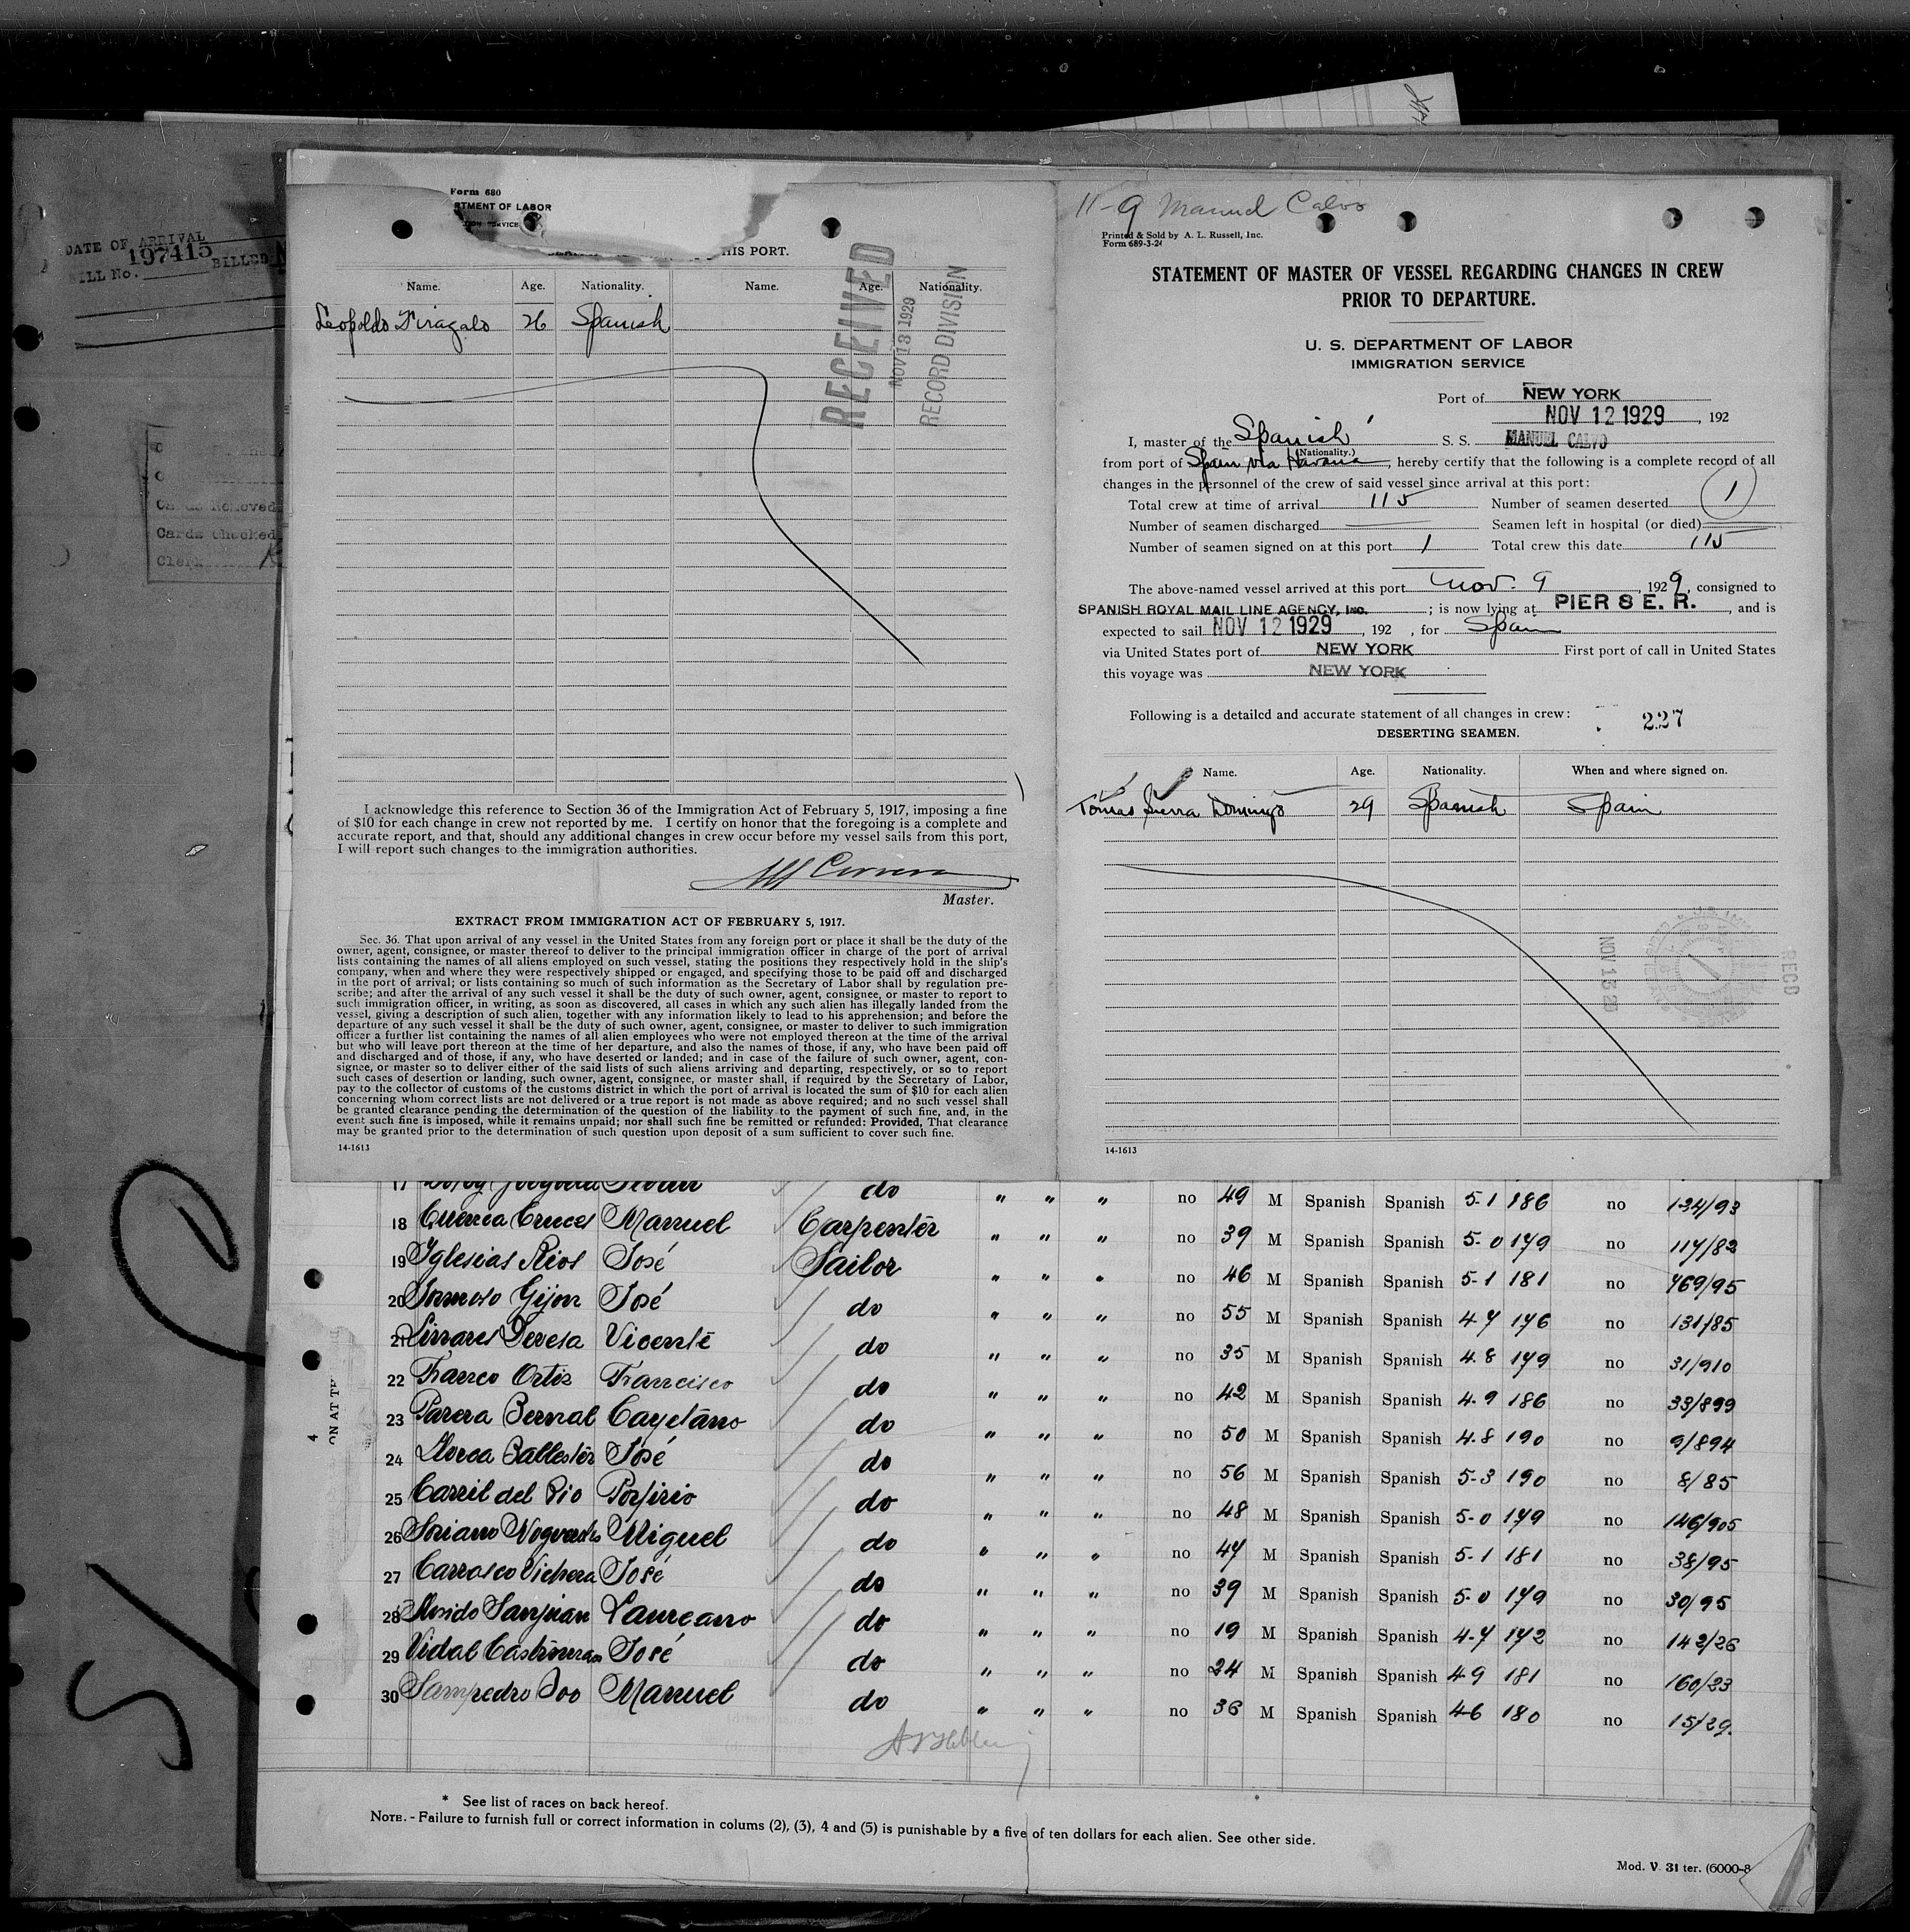 DATE OF ARRIVAL
197415
BILL No. BILLED
Cards Removed
Cards Checked
Clerk
Form 680
DEPARTMENT OF LABOR
HIS PORT.
Name. Age. Nationality. Name. Age. Nationality.
Leopoldo 26 Spanish
RECEIVED
NOV 13 1929
RECORD DIVISION
I acknowledge this reference to Section 36 of the Immigration Act of February 5, 1917, imposing a fine
of $10 for each change in crew not reported by me. I certify on honor that the foregoing is a complete and
accurate report, and that, should any additional changes in crew occur before my vessel sails from this port,
I will report such changes to the immigration authorities.
Master.
EXTRACT FROM IMMIGRATION ACT OF FEBRUARY 5, 1917.
Sec. 36. That upon arrival of any vessel in the United States from any foreign port or place it shall be the duty of the
owner, agent, consignee, or master thereof to deliver to the principal immigration officer in charge of the port of arrival
lists containing the names of all aliens employed on such vessel, stating the positions they respectively hold in the ship's
company, when and where they were respectively shipped or engaged, and specifying those to be paid off and discharged
in the port of arrival; or lists containing so much of such information as the Secretary of Labor shall by regulation pre-
scribe; and after the arrival of any such vessel it shall be the duty of such owner, agent, consignee, or master to report to
such immigration officer, in writing, as soon as discovered, all cases in which any such alien has illegally landed from the
vessel, giving a description of such alien, together with any information likely to lead to his apprehension; and before the
departure of any such vessel it shall be the duty of such owner, agent, consignee, or master to deliver to such immigration
officer a further list containing the names of all alien employees who were not employed thereon at the time of the arrival
but who will leave port thereon at the time of her departure, and also the names of those, if any, who have been paid off
and discharged and of those, if any, who have deserted or landed; and in case of the failure of such owner, agent, con-
signee, or master so to deliver either of the said lists of such aliens arriving and departing, respectively, or so to report
such cases of desertion or landing, such owner, agent, consignee, or master shall, if required by the Secretary of Labor,
pay to the collector of customs of the customs district in which the port of arrival is located the sum of $10 for each alien
concerning whom correct lists are not delivered or a true report is not made as above required; and no such vessel shall
be granted clearance pending the determination of the question of the liability to the payment of such fine, and, in the
event such fine is imposed, while it remains unpaid; nor shall such fine be remitted or refunded: Provided, That clearance
may be granted prior to the determination of such question upon deposit of a sum sufficient to cover such fine.
14-1613
11-9 Manuel Calvo
Printed & Sold by A. L. Russell, Inc.
Form 689-3-24
STATEMENT OF MASTER OF VESSEL REGARDING CHANGES IN CREW
PRIOR TO DEPARTURE.
U. S. DEPARTMENT OF LABOR
IMMIGRATION SERVICE
Port of NEW YORK
NOV 12 1929, 192
I, master of the Spanish S. S. MANUEL CALVO
(Nationality.)
from port of Spain via Havana, hereby certify that the following is a complete record of all
changes in the personnel of the crew of said vessel since arrival at this port:
Total crew at time of arrival 115 Number of seamen deserted 1
Number of seamen discharged Seamen left in hospital (or died)
Number of seamen signed on at this port 1 Total crew this date 115
The above-named vessel arrived at this port Nov. 9, 1929, consigned to
SPANISH ROYAL MAIL LINE AGENCY, INC. ; is now lying at PIER 8 E. R., and is
expected to sail NOV 12 1929, 192 , for Spain
via United States port of NEW YORK First port of call in United States
this voyage was NEW YORK
Following is a detailed and accurate statement of all changes in crew:
227
DESERTING SEAMEN.
Name. Age. Nationality. When and where signed on.
Tomas Sierra Domingo 29 Spanish Spain
NOV 13 29
RECD
14-1613
17 do " " " no 49 M Spanish Spanish 5-1 186 no 134/93
18 Cuenca Cruces Manuel Carpenter " " " no 39 M Spanish Spanish 5-0 179 no 117/82
19 Yglesias Rios José Sailor " " " no 46 M Spanish Spanish 5-1 181 no 769/95
20 Gijon José do " " " no 55 M Spanish Spanish 4-7 176 no 131/85
21 Linares Vicente do " " " no 35 M Spanish Spanish 4.8 179 no 31/910
22 Franco Ortiz Francisco do " " " no 42 M Spanish Spanish 4.9 186 no 33/899
23 Parera Bernal Cayetano do " " " no 50 M Spanish Spanish 4.8 190 no 9/894
24 Llorca Ballester José do " " " no 56 M Spanish Spanish 5-3 190 no 8/85
25 Carril del Rio Porfirio do " " " no 48 M Spanish Spanish 5-0 179 no 146/905
26 Soriano Miguel do " " " no 47 M Spanish Spanish 5-1 181 no 38/95
27 Carrasco José do " " " no 39 M Spanish Spanish 5-0 179 no 30/95
28 Sanjuan Laureano do " " " no 19 M Spanish Spanish 4-7 172 no 142/26
29 Vidal José do " " " no 24 M Spanish Spanish 4-9 181 no 160/23
30 Sampedro Manuel do " " " no 36 M Spanish Spanish 4-6 180 no 15/29
4
ON AT TH
* See list of races on back hereof.
NOTE. - Failure to furnish full or correct information in colums (2), (3), 4 and (5) is punishable by a five of ten dollars for each alien. See other side.
Mod. V. 31 ter. (6000-8